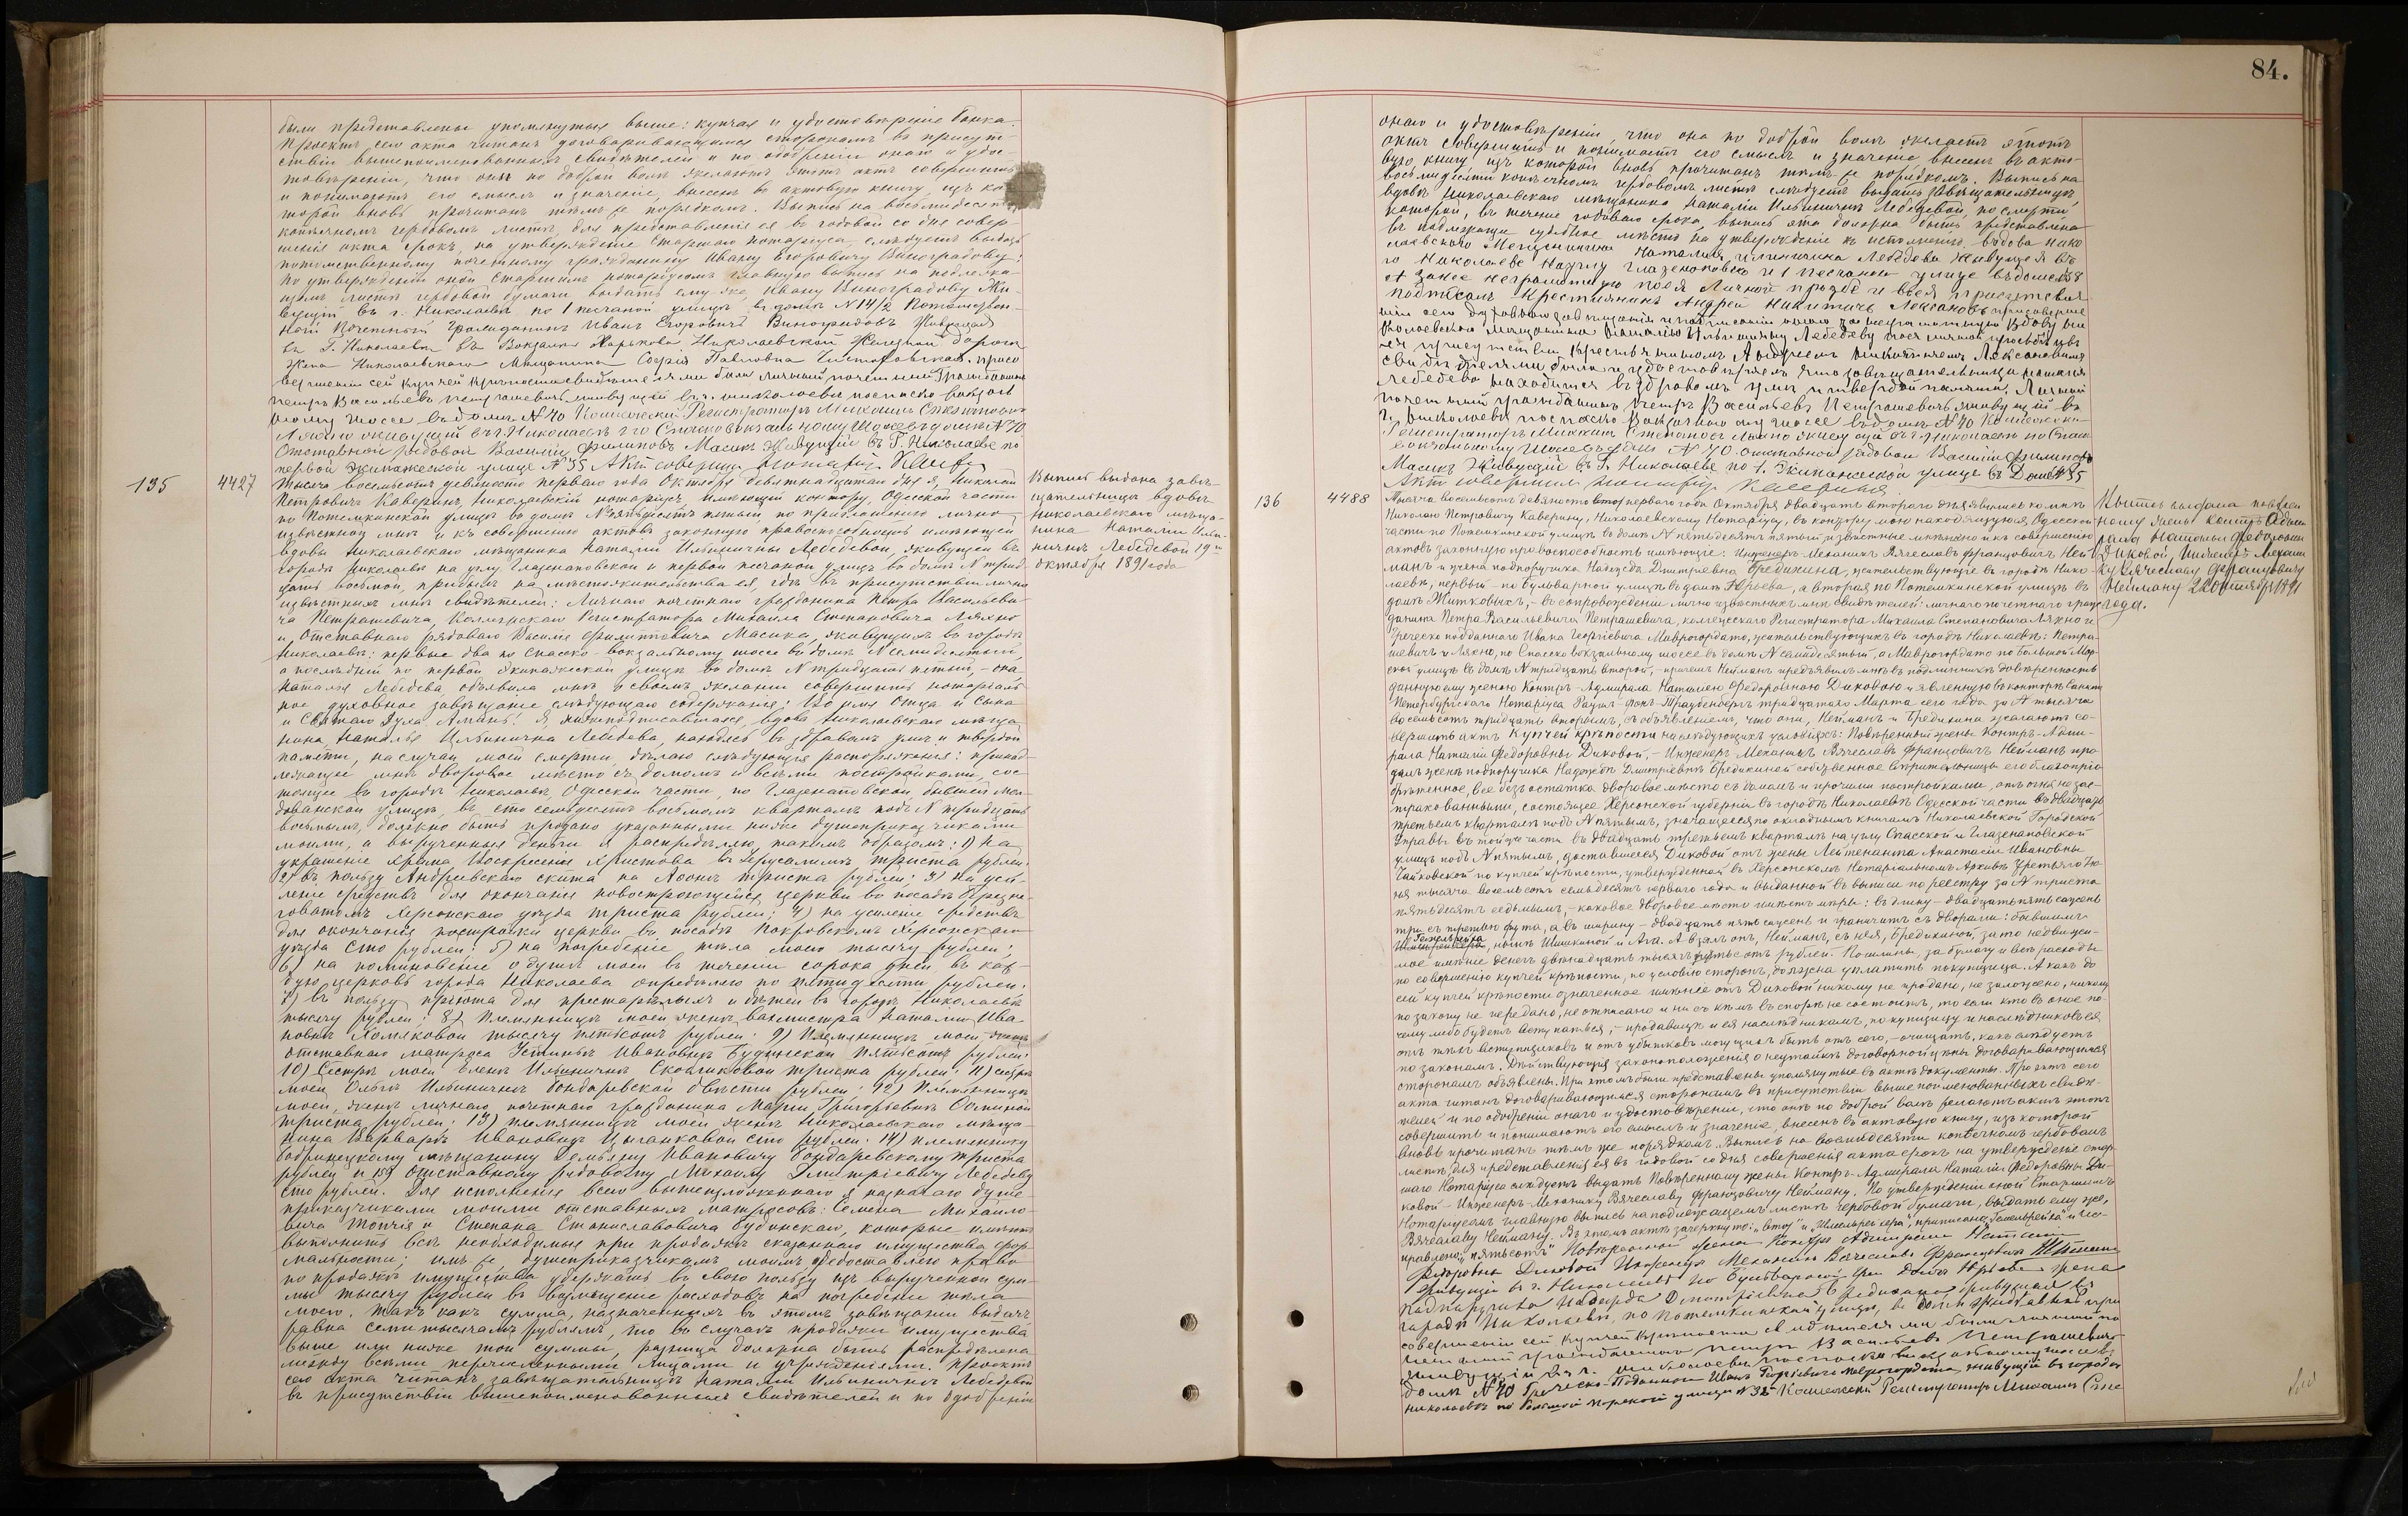 были представлены упомянутыя выше: купчая и удостовѣреніе банка.
Проектъ сего акта читанъ договаривающимся сторонамъ въ присут-
ствіи вышепоименованныхъ свидѣтелей и по одобреніи онаго и удос-
товѣреніи, что они по доброй волѣ желаютъ этотъ актъ совершить
и понимаютъ его смыслъ и значеніе, внесенъ въ актовую книгу, изъ ко-
торой вновь прочитанъ тѣмъ же порядкомъ. Выпись на восьмидесяти
копѣечномъ гербовомъ листѣ, для представленія ея въ годовой со дня совер-
шенія акта срокъ, на утвержденіе Старшаго нотаріуса, слѣдуетъ выдать
потомственному почетному гражданину Ивану Егоровичу Виноградову;
по утвержденіи оной Старшимъ нотаріусомъ главную выпись на подлежа-
щемъ листѣ гербовой бумаги выдать ему-же, Ивану Виноградову. Жи-
вущій въ г. Николаевѣ по 1 песчаной улицѣ въ домѣ N 14/2 Потомствен-
ный Почетный Гражданинъ Иванъ Егоровичъ Виноградовъ Живущая
въ Г. Николаевѣ въ Вокзалѣ Харьково Николаевской Желѣзной дороги
Жена Николаевскаго Мѣщанина Софія Павловна
вершеніи сей купчей крѣпости свидѣтелями были личный почетный Гражданинъ
Петръ Васильевъ Петрашевичъ живущій въ г. Николаевѣ по спаско вокзаль
ному шоссе въ домѣ N 70 Коллежскій Регистраторъ Михаилъ Степановичъ
Ляхно живущій въ г. Николаевѣ по Спасково вокзальному Шоссе въ домѣ N 70
Отставной рядовой Василій Филиповъ Масикъ Живущій въ Г. Николаевѣ по
первой Экипажеской улице N 35 Актъ совершилъ Нотаріусъ Каверинъ
135
4427
Тысяча восемьсотъ девяносто перваго года Октября девятнадцатаго дня я, Николай
Петровичъ Каверинъ, Николаевскій нотаріусъ, имѣющій контору, Одесской части
по Потемкинской улицѣ въ домѣ N пятьдесятъ пятый, по приглашенію лично
извѣстной мнѣ и къ совершенію актовъ законную правоспособность имѣющей
вдовы Николаевскаго мѣщанина Наталіи Ильиничны Лебедевой, живущей въ
городѣ Николаевѣ на углу Глазенаповской и первой песчаной улицъ въ домѣ N трид-
цать восьмой, прибылъ на мѣстожительства ея, гдѣ въ присутствіи лично
извѣстныхъ мнѣ свидѣтелей: Личнаго почетнаго гражданина Петра Васильеви-
ча Петрашевича, Коллежскаго Регистратора Михаила Степановича Ляхно
и Отставнаго рядоваго Василія Филипповича Масика, живущихъ въ городѣ
Николаевѣ: первые два по Спасско-вокзальному шоссе въ домѣ N семидесятый,
а послѣдній по первой Экипажеской улицѣ въ домѣ N тридцать пятый, - она
Наталія Лебедева, объявила мнѣ о своемъ желаніи совершить нотаріаль-
ное духовное завѣщаніе слѣдующаго содержанія: Во имя Отца и Сына
и Святаго Духа. Аминь! Я нижеподписавшаяся, вдова Николаевскаго мѣща-
нина Наталья Ильинична Лебедева, находясь въ здравомъ умѣ и твердой
памяти, на случай моей смерти, дѣлаю слѣдующія распоряженія: принад-
лежащее мнѣ дворовое мѣсто съ домомъ и всѣми постройками, сос-
тоящее въ городѣ Николаевѣ, Одесской части, по Глазенаповской, бывшей Мол-
дованской улицѣ, въ сто семидесятъ восьмомъ кварталѣ подъ N тридцать
восьмымъ, должно быть продано указанными ниже душеприказчиками
моими, а вырученныя деньги я распредѣляю такимъ образомъ: 1) на
украшеніе храма Воскресенія Христова въ Іерусалимѣ триста рублей;
2) въ пользу Андреевскаго скита на Афонѣ триста рублей; 3) на уси-
леніе средствъ для окончанія новостроющейся церкви въ посадѣ Березне-
говатомъ Херсонскаго уѣзда триста рублей; 4) на усиленіе средствъ
для окончанія постройки церкви въ посадѣ Покровскомъ Херсонскаго
уѣзда сто рублей; 5) на погребеніе тѣла моего тысячу рублей;
6) на поминовеніе о душѣ моей въ теченіи сорока дней въ каж-
дую церковь города Николаева опредѣляю по пятидесяти рублей;
7) въ пользу пріюта для престарѣлыхъ и дѣтей въ городѣ Николаевѣ
тысячу рублей; 8) Племянницѣ моей женѣ вахмистра Наталіи Ива-
новнѣ Хомяковой тысячу пятьсотъ рублей; 9) Племянницѣ моей женѣ
отставнаго матроса Устиньѣ Ивановнѣ Будинской пятьсотъ рублей;
10) Сестрѣ моей Еленѣ Ильиничнѣ Скобликовой триста рублей; 11) сестрѣ
моей Ольгѣ Ильиничнѣ Бондаревской двѣсти рублей; 12) Племянницѣ
моей, женѣ личнаго почетнаго гражданина Маріи Григорьевнѣ Соминой
триста рублей; 13) племянницѣ моей женѣ Николаевскаго мѣща-
нина Варварѣ Ивановнѣ Цыганковой сто рублей; 14) племяннику
бобринецкому мѣщанину Демьяну Ивановичу Бондаревскому триста
рублей и 15) Отставному рядовому Михаилу Дмитріевичу Лебедеву
сто рублей. Для исполненія всего вышеизложеннаго я назначаю душе-
приказчиками моими отставныхъ матросовъ: Семена Михайло-
вича Топчія и Степана Станиславовича Будинскаго, которые имѣютъ
выполнить всѣ необходимыя при продажѣ сказаннаго имущества фор-
мальности; имъ же, душеприказчикамъ моимъ, предоставляю право
по продажѣ имущества удержать въ свою пользу изъ вырученной сум-
мы тысячу рублей въ возмѣщеніе расходовъ на погребеніе тѣла
моего. Такъ какъ сумма, назначенныхъ въ этомъ завѣщаніи выдачъ
равна семитысячамъ рублямъ, то въ случаѣ продажи имущества
выше или ниже той суммы, разница должна быть распредѣлена
между всѣми перечисленными лицами и учрежденіями. Проектъ
сего акта читанъ завѣщательницѣ Наталіи Ильиничнѣ Лебедевой
въ присутствіи вышепоименованныхъ свидѣтелей и по одобреніи
Выпись выдана завѣ-
щательницѣ вдовѣ
николаевскаго мѣща-
нина Наталіи Ильи-
ничнѣ Лебедевой 19го
октября 1891 года
84.
онаго и удостовѣреніи, что она по доброй волѣ желаетъ этотъ
актъ совершить и понимаетъ его смыслъ и значеніе внесенъ въ акто-
вую книгу, изъ которой вновь прочитанъ тѣмъ же порядкомъ. Выпись на
восьмидесяти копѣечномъ гербовомъ листѣ слѣдуетъ выдать завѣщательницѣ
вдовѣ Николаевскаго мѣщанина Наталіи Ильиничнѣ Лебедевой, по смерти
которой, въ теченіе годоваго срока, выпись эта должна быть представлена
въ надлежащее судебное мѣсто на утвержденіе къ исполненію. Вдова нико
лаевскаго Мещанина Наталия Илинична Лебедева живущая въ
го Николаеве Науглу Глазенаповско и 1 песчаной улице въ доме 38
А занее неграмотную поея личной прозбе и вея присутствии
подписалъ Крестиянинъ Андрей Никитичъ Локсановъ присоверше
ніи сего духовнаго завѣщанія и подписаніи онаго за неграмотную вдову ни
колаевскаго мѣщанина Наталію Ильиничну Лебедеву поея личной просьбѣ и въ
ея присутствіи крестьяниномъ Андреемъ Никитичемъ Локсановымъ
свидѣтелями были и удостовѣряемъ что завѣщательница Наталія
Лебедева находится въ здравомъ умѣ и твердой памяти. Личный
почетный гражданинъ Петръ Васильевъ Петрашевичъ живущій въ
г. Николаевѣ поспаско Вокзальному шоссе въ домѣ N 70 Коллежскій
Регистраторъ Михаилъ Степановъ Ляхно живущій въ г. Николаевѣ по Спаско
вокзальному Шоссе въ домѣ N 70. отставной рядовой Василій Филиповъ
Масикъ Живущій въ Г. Николаеве по 1. Экипажеской улице въ Доме N 35
Актъ совершилъ Нотаріусъ Каверинъ
136
4488
Тысяча восемьсотъ девяносто втор перваго года Октября двадцать втораго дня явились ко мнѣ
Николаю Петровичу Каверину, Николаевскому Нотаріусу, въ контору мою находящуюся Одесской
части по Потемкинской улицѣ въ домѣ N пятьдесятъ пятый извѣстные мнѣ лично и къ совершенію
актовъ законную правоспособность имѣющіе: Инженеръ-Механикъ Вячеславъ Францовичъ Ней-
манъ и жена подпоручика Надежда Дмитріевна Бредихина, жительствующіе въ городѣ Нико-
лаевѣ, первый - по Бульварной улицѣ въ домѣ Юрьева, а вторая по Потемкинской улицѣ въ
домѣ Житковыхъ, - въ сопровожденіи лично извѣстныхъ мнѣ свидѣтелей: личнаго почетнаго граж-
данина Петра Васильевича Петрашевича, коллежскаго Регистратора Михаила Степановича Ляхно и
Греческо-подданнаго Ивана Георгіевича Маврогордато, жительствующихъ въ городѣ Николаевѣ: Петра-
шевичъ и Ляхно, по Спасско вокзальному шоссе въ домѣ N семидесятый, а Маврогордато по большой Мор-
ской улицѣ въ домѣ N тридцать второй, - причемъ Нейманъ предъявилъ мнѣ въ подлинникѣ довѣренность
данную ему женою Контръ-Адмирала Наталіею Федоровною Диковою и явленную въ конторѣ Санкт
Петербургскаго Нотаріуса Рауш-фонъ-Траубенбергъ тридцатаго Марта сего года за N тысяча
восемьсотъ тридцать вторымъ, съ объявленіемъ, что они, Нейманъ и Бредихина желаютъ со-
вершить актъ купчей крѣпости на слѣдующихъ условіяхъ: Повѣренный жены Контръ-Адми-
рала Наталіи Федоровны Диковой, - Инженеръ-Механикъ Вячеславъ Францовичъ Нейманъ про-
далъ женѣ подпоручика Надеждѣ Дмитріевнѣ Бредихиной собственное вѣрительницы его благопріо-
брѣтенное, все безъ остатка дворовое мѣсто съ домомъ и прочими постройками, отъ огня не зас-
трахованными, состоящее Херсонской губерніи въ городѣ Николаевѣ Одесской части въ двадцать
третьемъ кварталѣ подъ N пятымъ, значащееся по окладнымъ книгамъ Николаевской Городской
Управы въ той же части въ двадцать третьемъ кварталѣ на углу Спасской и Глазенаповской
улицъ подъ N пятымъ, доставшееся Диковой отъ жены Лейтенанта Анастасіи Ивановны
Чайковской по купчей крѣпости, утвержденной въ Херсонскомъ Нотаріальномъ Архивѣ третьяго Ію
ня тысяча восемьсотъ семьдесятъ перваго года и выданной въ выписи по реестру за N триста
пятьдесятъ седьмымъ, - каковое дворовое мѣсто имѣетъ мѣры: въ длину - двадцать пять сажень
три съ третью фута, а въ ширину - двадцать пять сажень и граничитъ съ дворами: бывшимъ
Гемельрейха
Шмельрейхера, нынѣ Шишкиной и Ага. А взялъ онъ, Нейманъ, съ нея, Бредихиной, за то недвижи-
мое имѣніе денегъ двѣнадцать тысячъ пятьсотъ рублей. Пошлины, за бумагу и всѣ расходы
по совершенію купчей крѣпости, по условію сторонъ, должна уплатить покупщица. А какъ до
сей купчей крѣпости означенное имѣніе отъ Диковой никому не продано, не заложено, никому
ни за что не передано, не отписано и ни съ кѣмъ въ спорѣ не состоитъ, то если кто въ оное по-
чему либо будетъ вступаться, - продавицѣ и ея наслѣдникамъ, покупщицу и наслѣдниковъ ея
отъ тѣхъ вступщиковъ и отъ убытковъ могущихъ быть отъ сего, - очищать, какъ слѣдуетъ
по законамъ. Дѣйствующія законоположенія о неутайкѣ договорной цѣны договаривающимся
сторонамъ объявлены. При этомъ были представлены упомянутые въ актѣ документы. Проектъ сего
акта читанъ договаривающимся сторонамъ въ присутствіи вышепоименованныхъ свидѣ-
телей и по одобреніи онаго и удостовѣреніи, что они по доброй волѣ желаютъ актъ этотъ
совершить и понимаютъ его смыслъ и значеніе, внесенъ въ актовую книгу, изъ которой
вновь прочитанъ тѣмъ же порядкомъ. Выпись на восмидесяти копѣечномъ гербовомъ
листѣ, для представленія ея въ годовой со дня совершенія акта срокъ на утвержденіе стар-
шаго Нотаріуса слѣдуетъ выдать Повѣренному жены Контръ-Адмирала Наталіи Федоровны Ди-
ковой - Инженеръ-Механику Вячеславу Францовичу Нейману. По утвержденіи оной Старшимъ
Нотаріусомъ главную выпись на подлежащемъ листѣ гербовой бумаги, выдать ему же,
Вячеславу Нейману. Въ этомъ актѣ зачеркнуто: „втор" и „Шмельрейхера", приписано „Гемельрейха" и ис-
правлено: „пятьсотъ" Повѣренный жены Контръ Адмирала Наталіи
Федоровны Диковой Инженеръ Механикъ Вячеславъ Францовичъ Нейманъ
Живущій въ г. Николаевѣ по Бульварной ул. домъ Юрьева. Жена
Подпоручика Надежда Дмитріевна Бредихина живущая въ
городѣ Николаевѣ, по Потемкинской улицѣ, въ домѣ Житковыхъ при
совершеніи сей купчей крѣпости свидѣтелями были личный по
четный гражданинъ Петръ Васильевъ Петрашевичъ
живущій въ г. Николаевѣ поспаско вокзальному шоссе въ
домѣ N 70 Греческо-Подданный Иванъ Георгіевичъ Маврогордато, живущій въ городѣ
Николаевѣ по большой морской улицѣ N 32 Коллежскій Регистраторъ Михаилъ Степа
Выпись выдана повѣрен
ному жены Контръ Адми
рала Наталіи Федоровны
Диковой, Инженеръ Механи
ку Вячеславу Францовичу
Нейману 22 октября 1891
года.